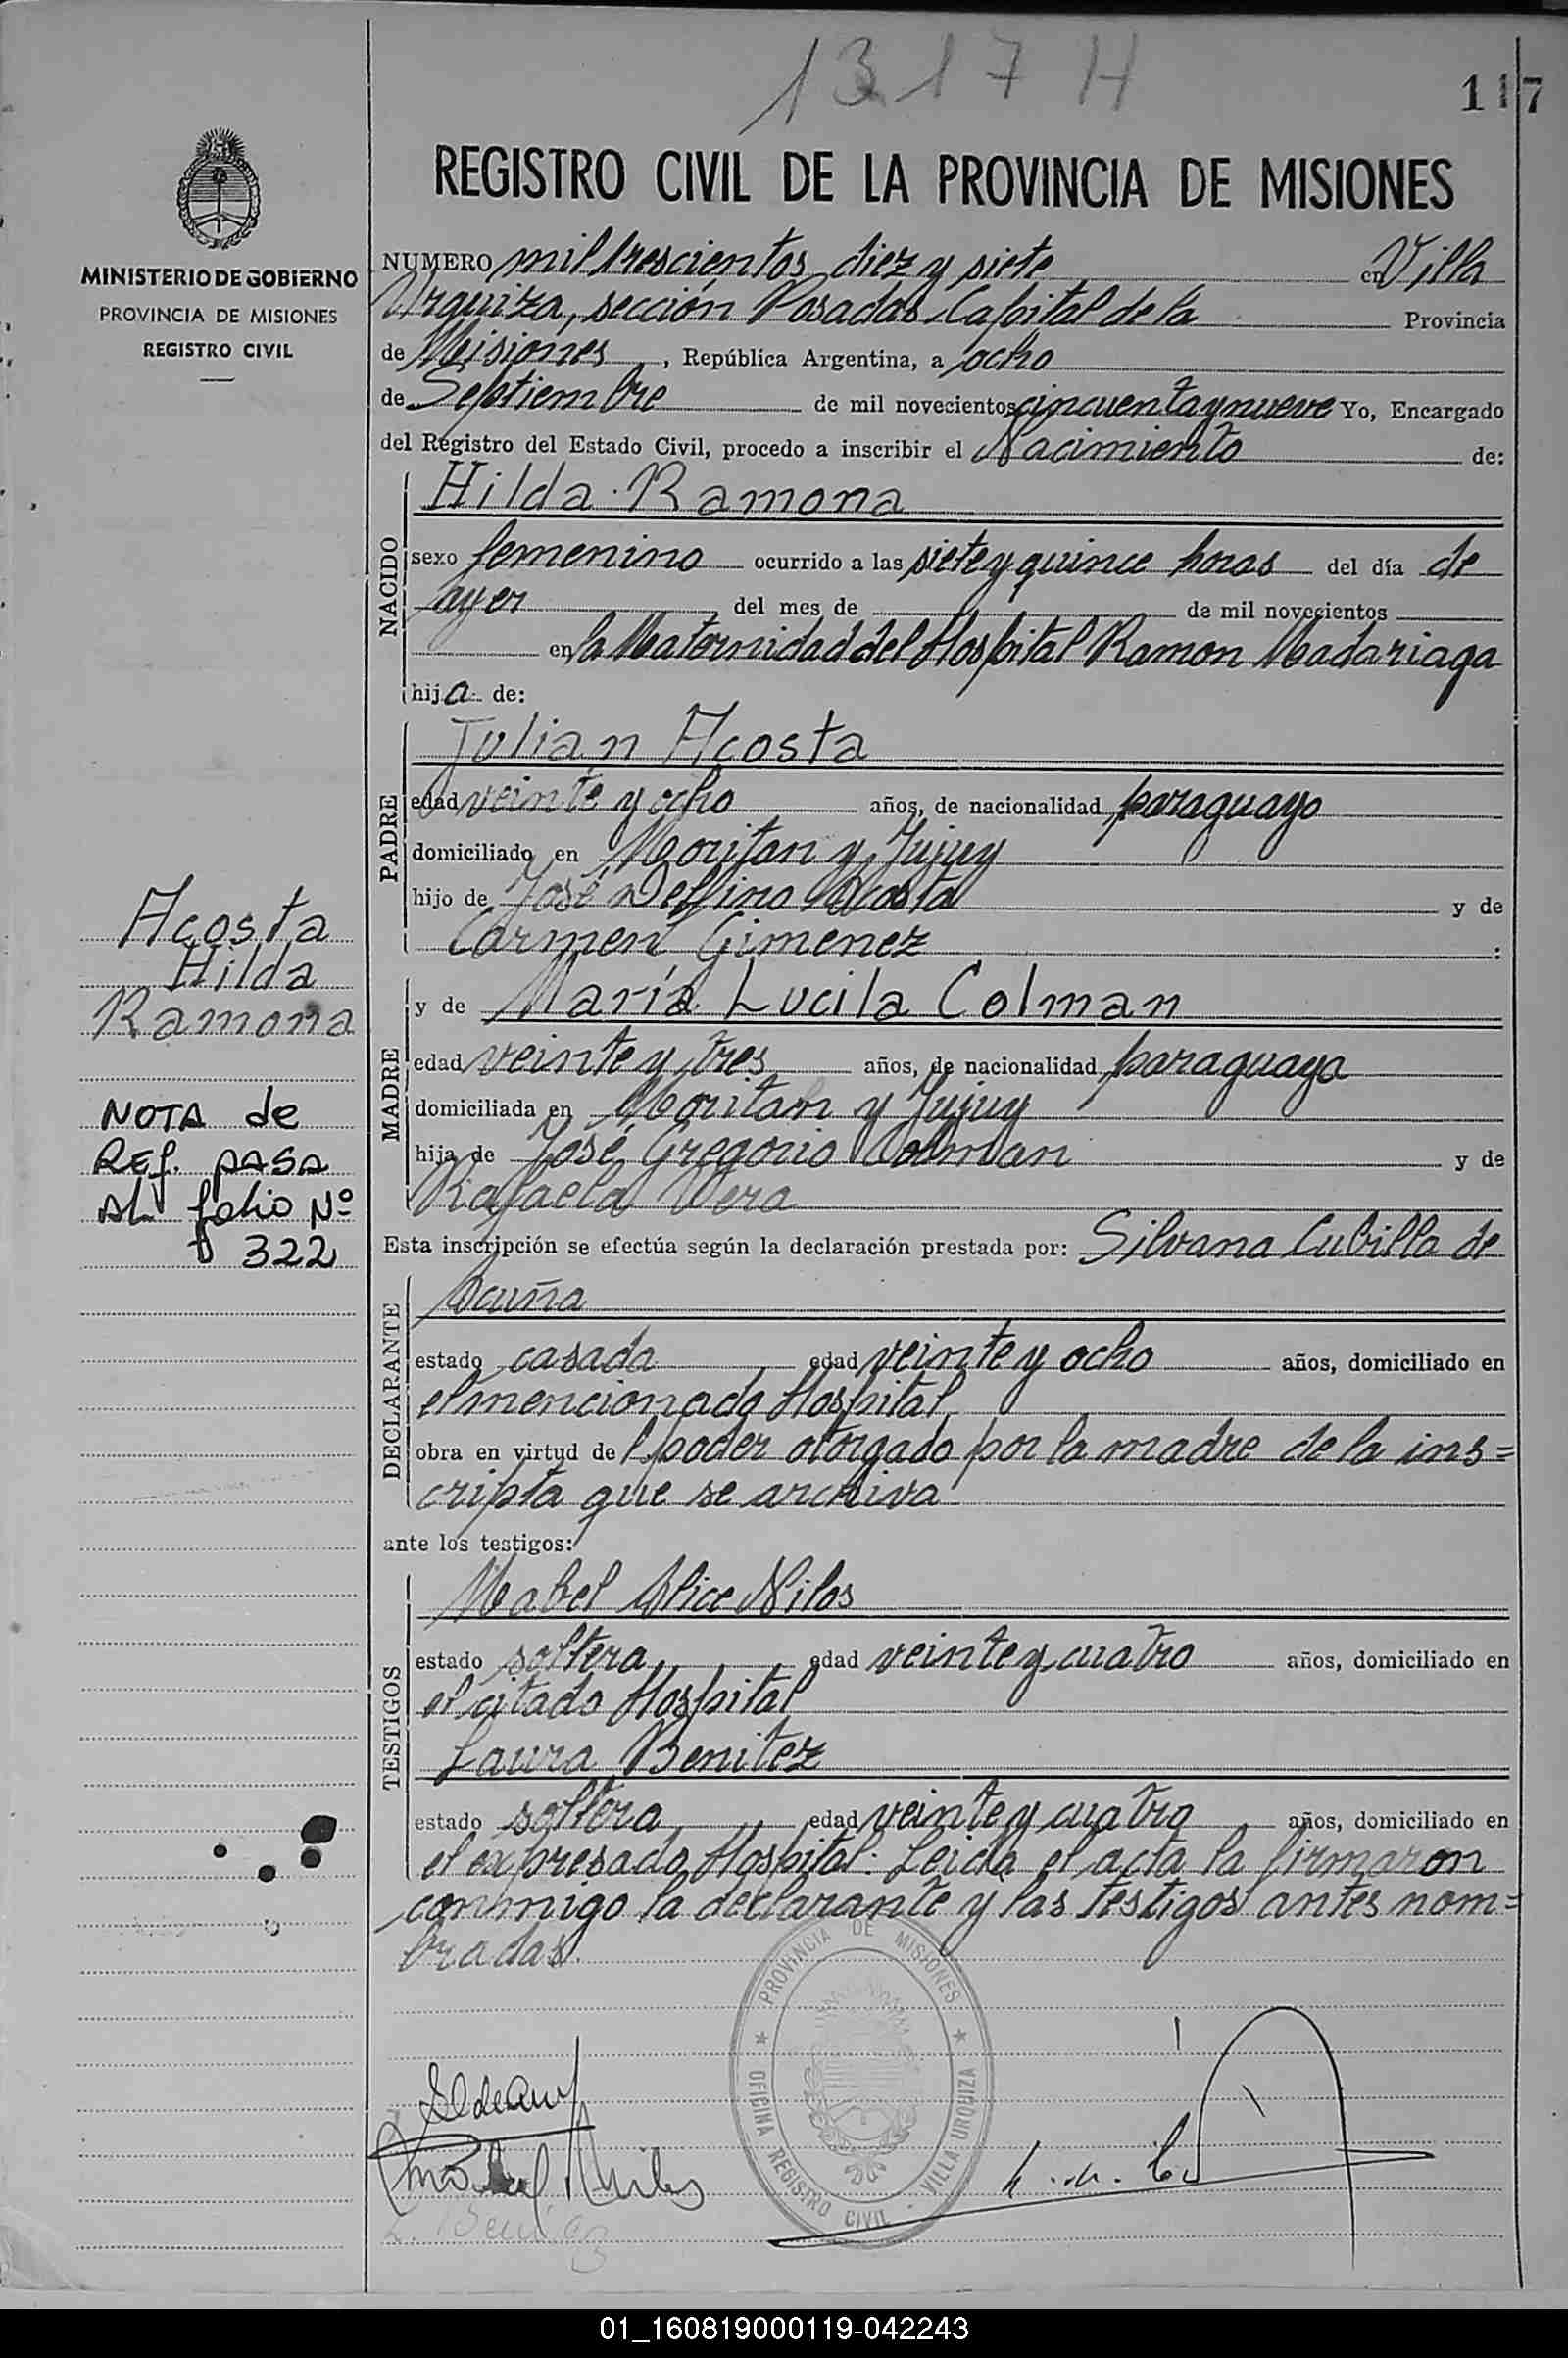 1317 H
117
REGISTRO CIVIL DE LA PROVINCIA DE MISIONES
MINISTERIO DE GOBIERNO
PROVINCIA DE MISIONES
REGISTRO CIVIL
NUMERO mil trescientos diez y siete en Villa
Urquiza, sección Posadas Capital de la Provincia
de Misiones, República Argentina, a ocho
de Septiembre de mil novecientos cincuenta y nueve Yo, Encargado
del Registro del Estado Civil, procedo a inscribir el Nacimiento de:
NACIDO
Hilda Ramona
sexo femenino ocurrido a las siete y quince horas del día de
ayer del mes de de mil novecientos
en la Maternidad del Hospital Ramon Madariaga
hija de:
PADRE
Julian Acosta
edad veinte y ocho años, de nacionalidad paraguayo
domiciliado en Moritan y Jujuy
hijo de José Delfino Acosta y de
Carmen Gimenez :
MADRE
y de María Lucila Colman
edad veinte y tres años, de nacionalidad paraguaya
domiciliada en Moritan y Jujuy
hija de José Gregorio Colman y de
Rafaela Vera
Acosta
Hilda
Ramona
NOTA de
Ref. PASA
AL folio Nº
322
Esta inscripción se efectúa según la declaración prestada por: Silvana Cubilla de
DECLARANTE
Acuña
estado casada edad veinte y ocho años, domiciliado en
el mencionado Hospital
obra en virtud del poder otorgado por la madre de la ins=
cripta que se archiva
ante los testigos:
TESTIGOS
Mabel Alice Nilos
estado soltera edad veinte y cuatro años, domiciliado en
el citado Hospital
Laura Benitez
estado soltera edad veinte y cuatro años, domiciliado en
el expresado Hospital. Leida el acta la firmaron
conmigo la declarante y las testigos antes nom=
bradas.
PROVINCIA DE MISIONES
OFICINA REGISTRO CIVIL - VILLA URQUIZA
L. Benitez
01_160819000119-042243